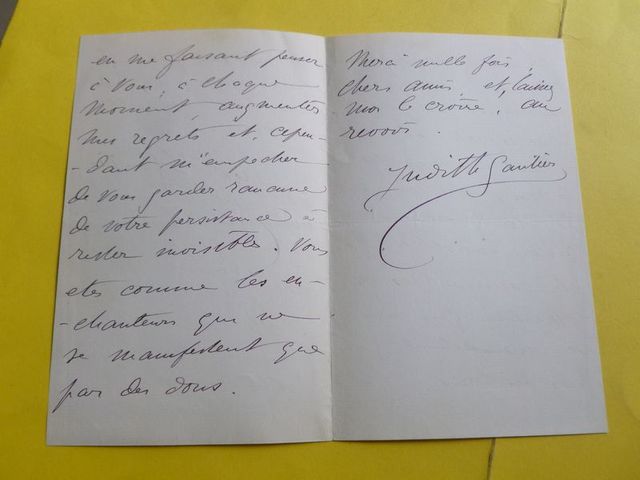 en me faisant penser
à vous, à chaque
moment, augmenter
mes regrets et, cepen-
-dant m'empêcher
de vous garder rancune
de votre persistance à
rester invisibles. Vous
etes comme les en-
-chanteurs qui ne
se manifestent que
par des dons.
Merci mille fois,
chers amis, et, laissez
moi le croire, au
revoir.
Judith Gautier